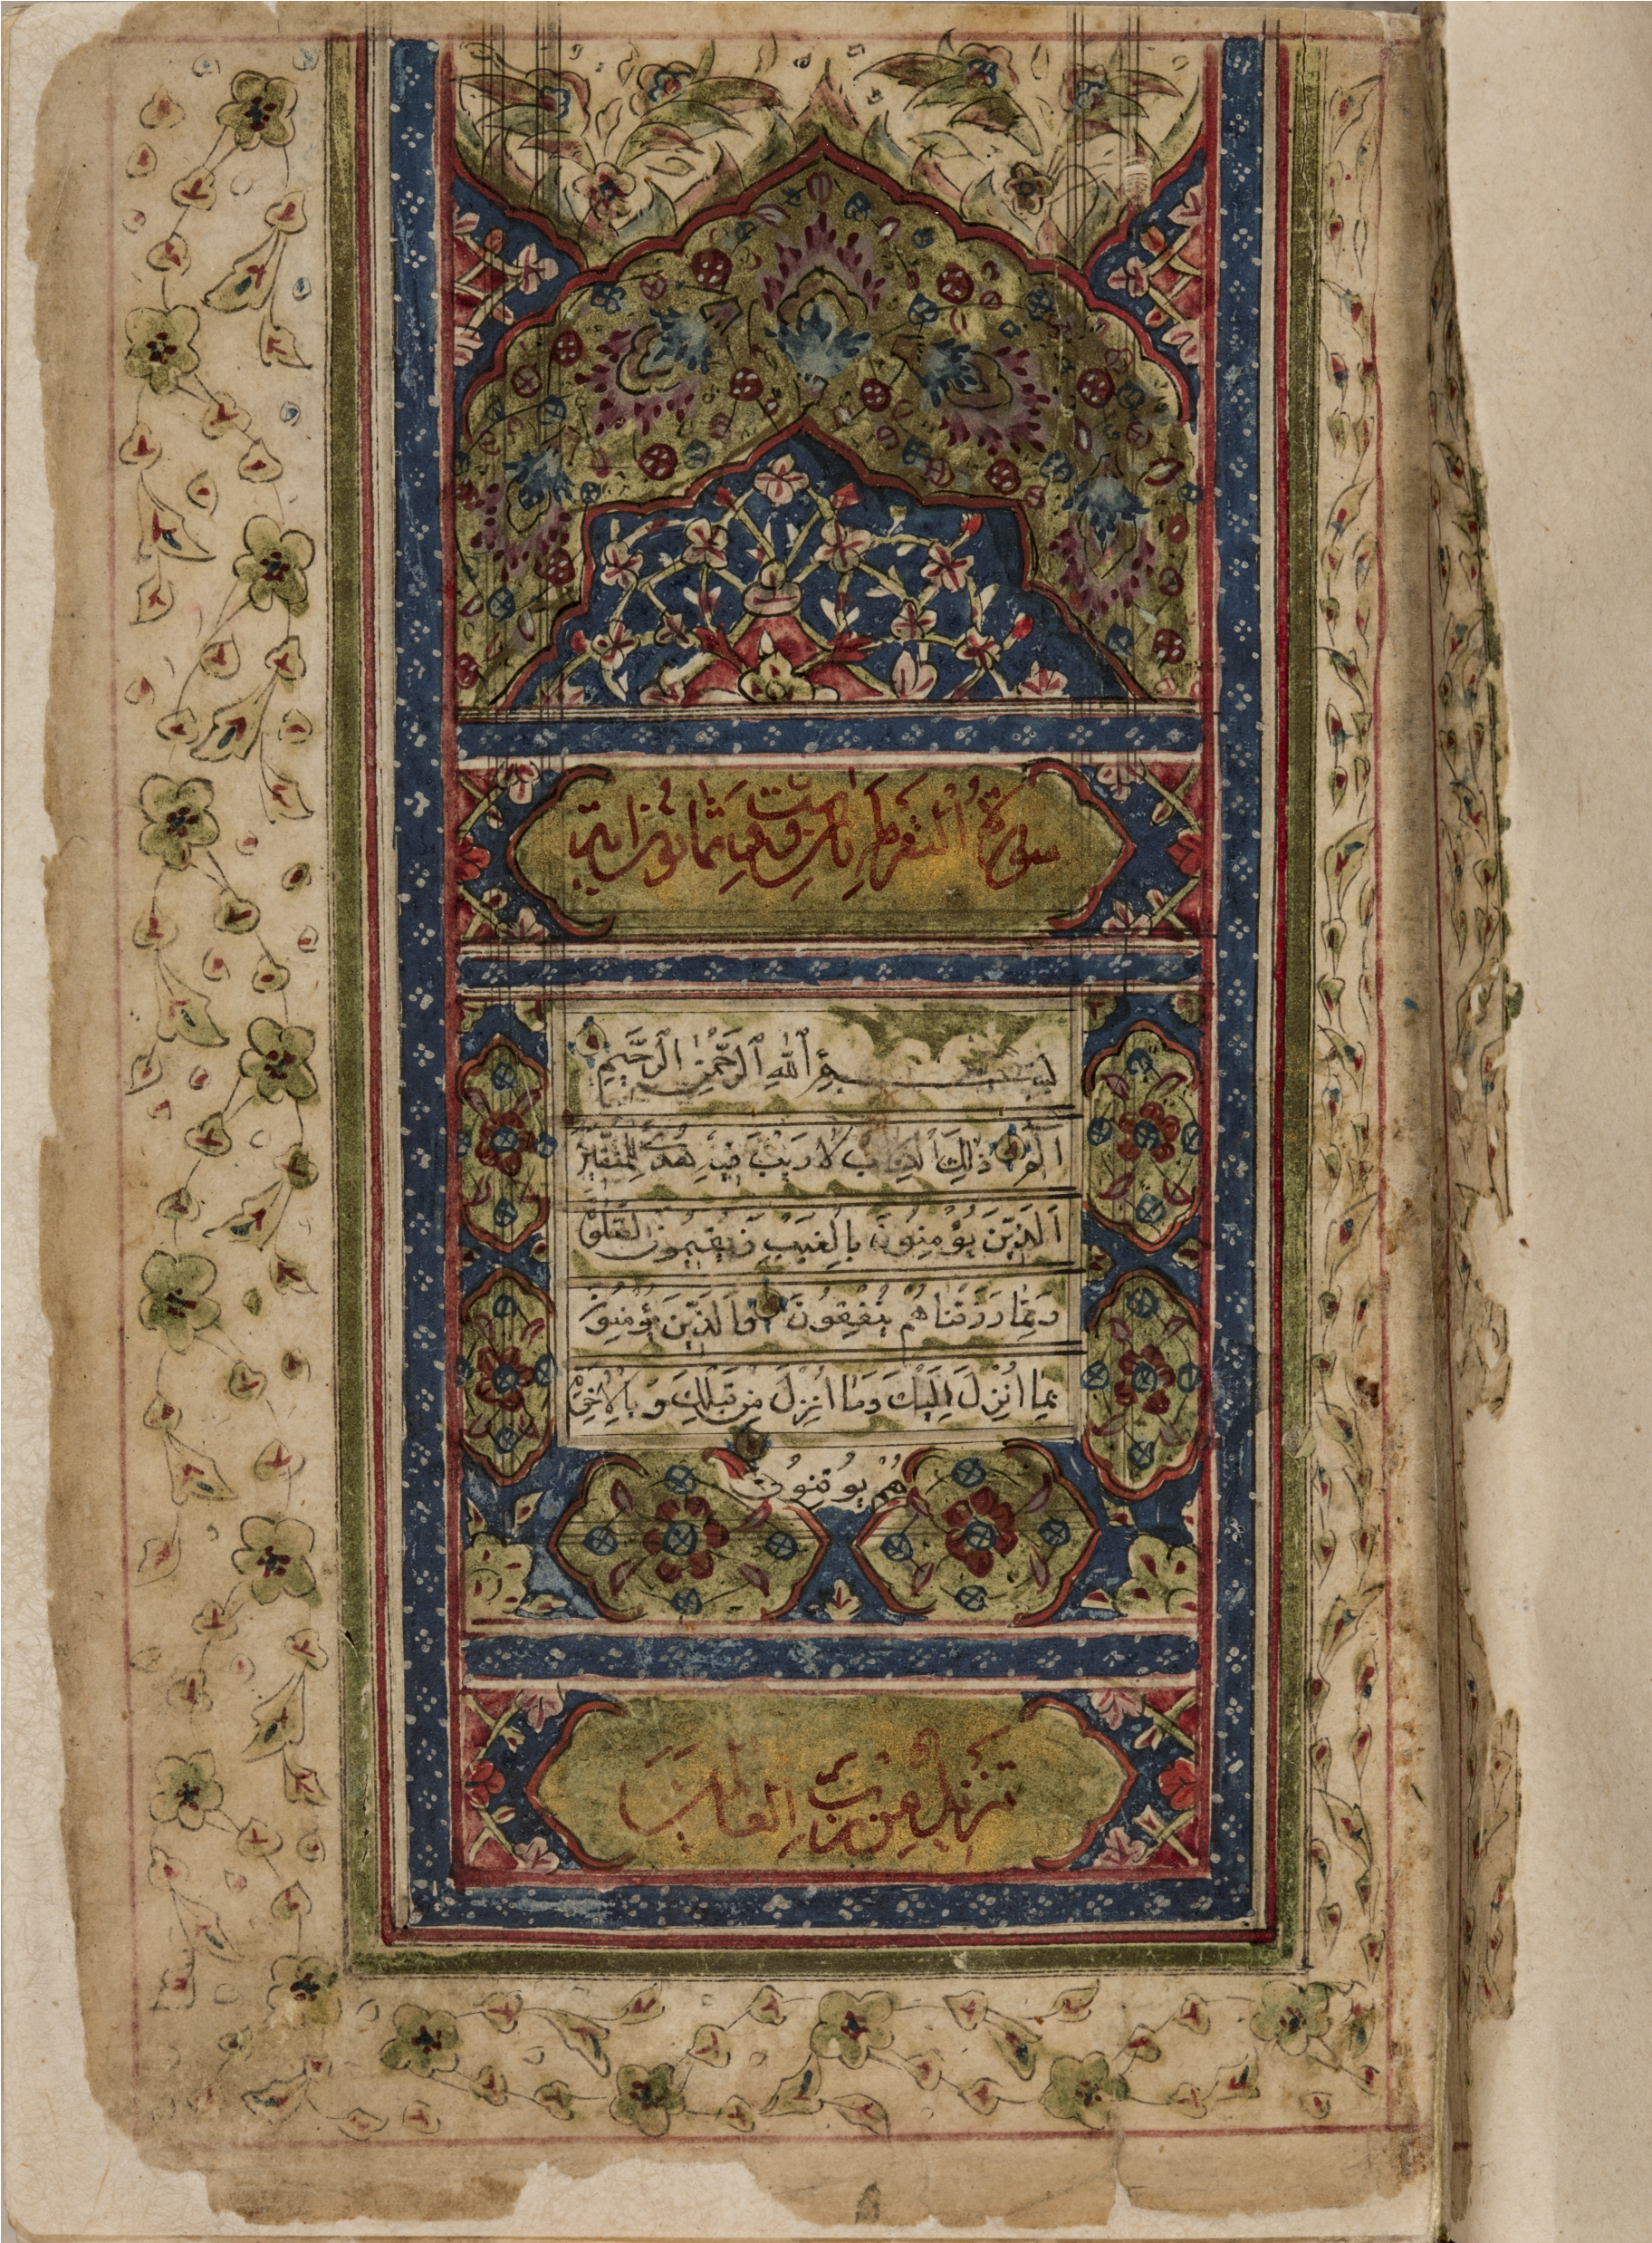 سورة البقرة مائتين وست وثمانون آية
بِسْمِ ٱللَّهِ ٱلرَّحْمٰنِ ٱلرَّحِيمِ
الٓمٓ ذٰلِكَ الْكِتَابُ لَا رَيْبَ فِيهِ هُدًى لِلْمُتَّقِينَ
الَّذِينَ يُؤْمِنُونَ بِالْغَيْبِ وَيُقِيمُونَ الصَّلٰوةَ
وَمِمَّا رَزَقْنَاهُمْ يُنْفِقُونَ وَالَّذِينَ يُؤْمِنُونَ
بِمَا أُنْزِلَ إِلَيْكَ وَمَا أُنْزِلَ مِنْ قَبْلِكَ وَبِالْآخِرَةِ
هُمْ يُوقِنُونَ
تنزيل من رب العالمين